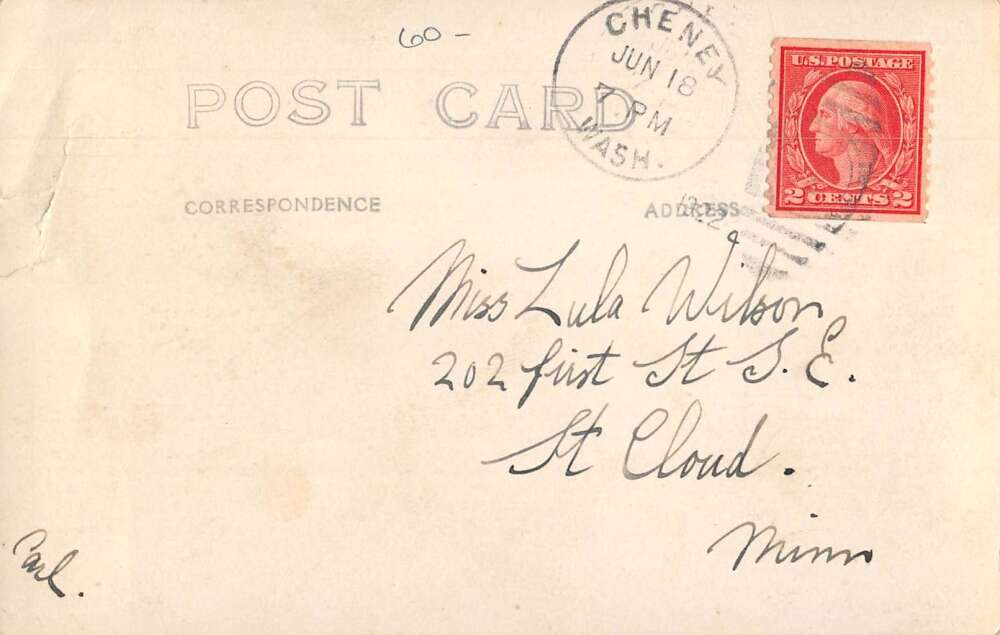 60-
CHENEY
JUN 18
7 PM
WASH.
1922
U.S. POSTAGE
2 CENTS 2
POST CARD
CORRESPONDENCE
ADDRESS
Miss Lula Wilson
202 first St S. E.
St Cloud.
Minn
Carl.